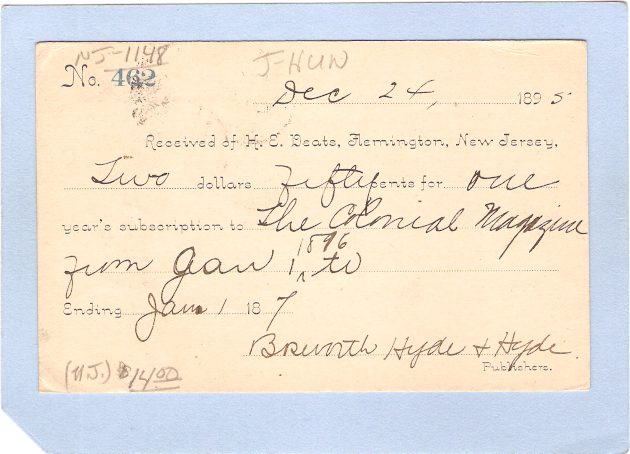 NJ-1148
J-HUN
No. 462
Dec 24, 1895
Received of H. E. Deats, Flemington, New Jersey,
Two dollars fifty cents for one
year's subscription to The Colonial Magazine
1896
from Jan 1, ^ to
Ending Jan 1 187
Bosworth Hyde + Hyde
Publishers.
(NJ.) $14.00